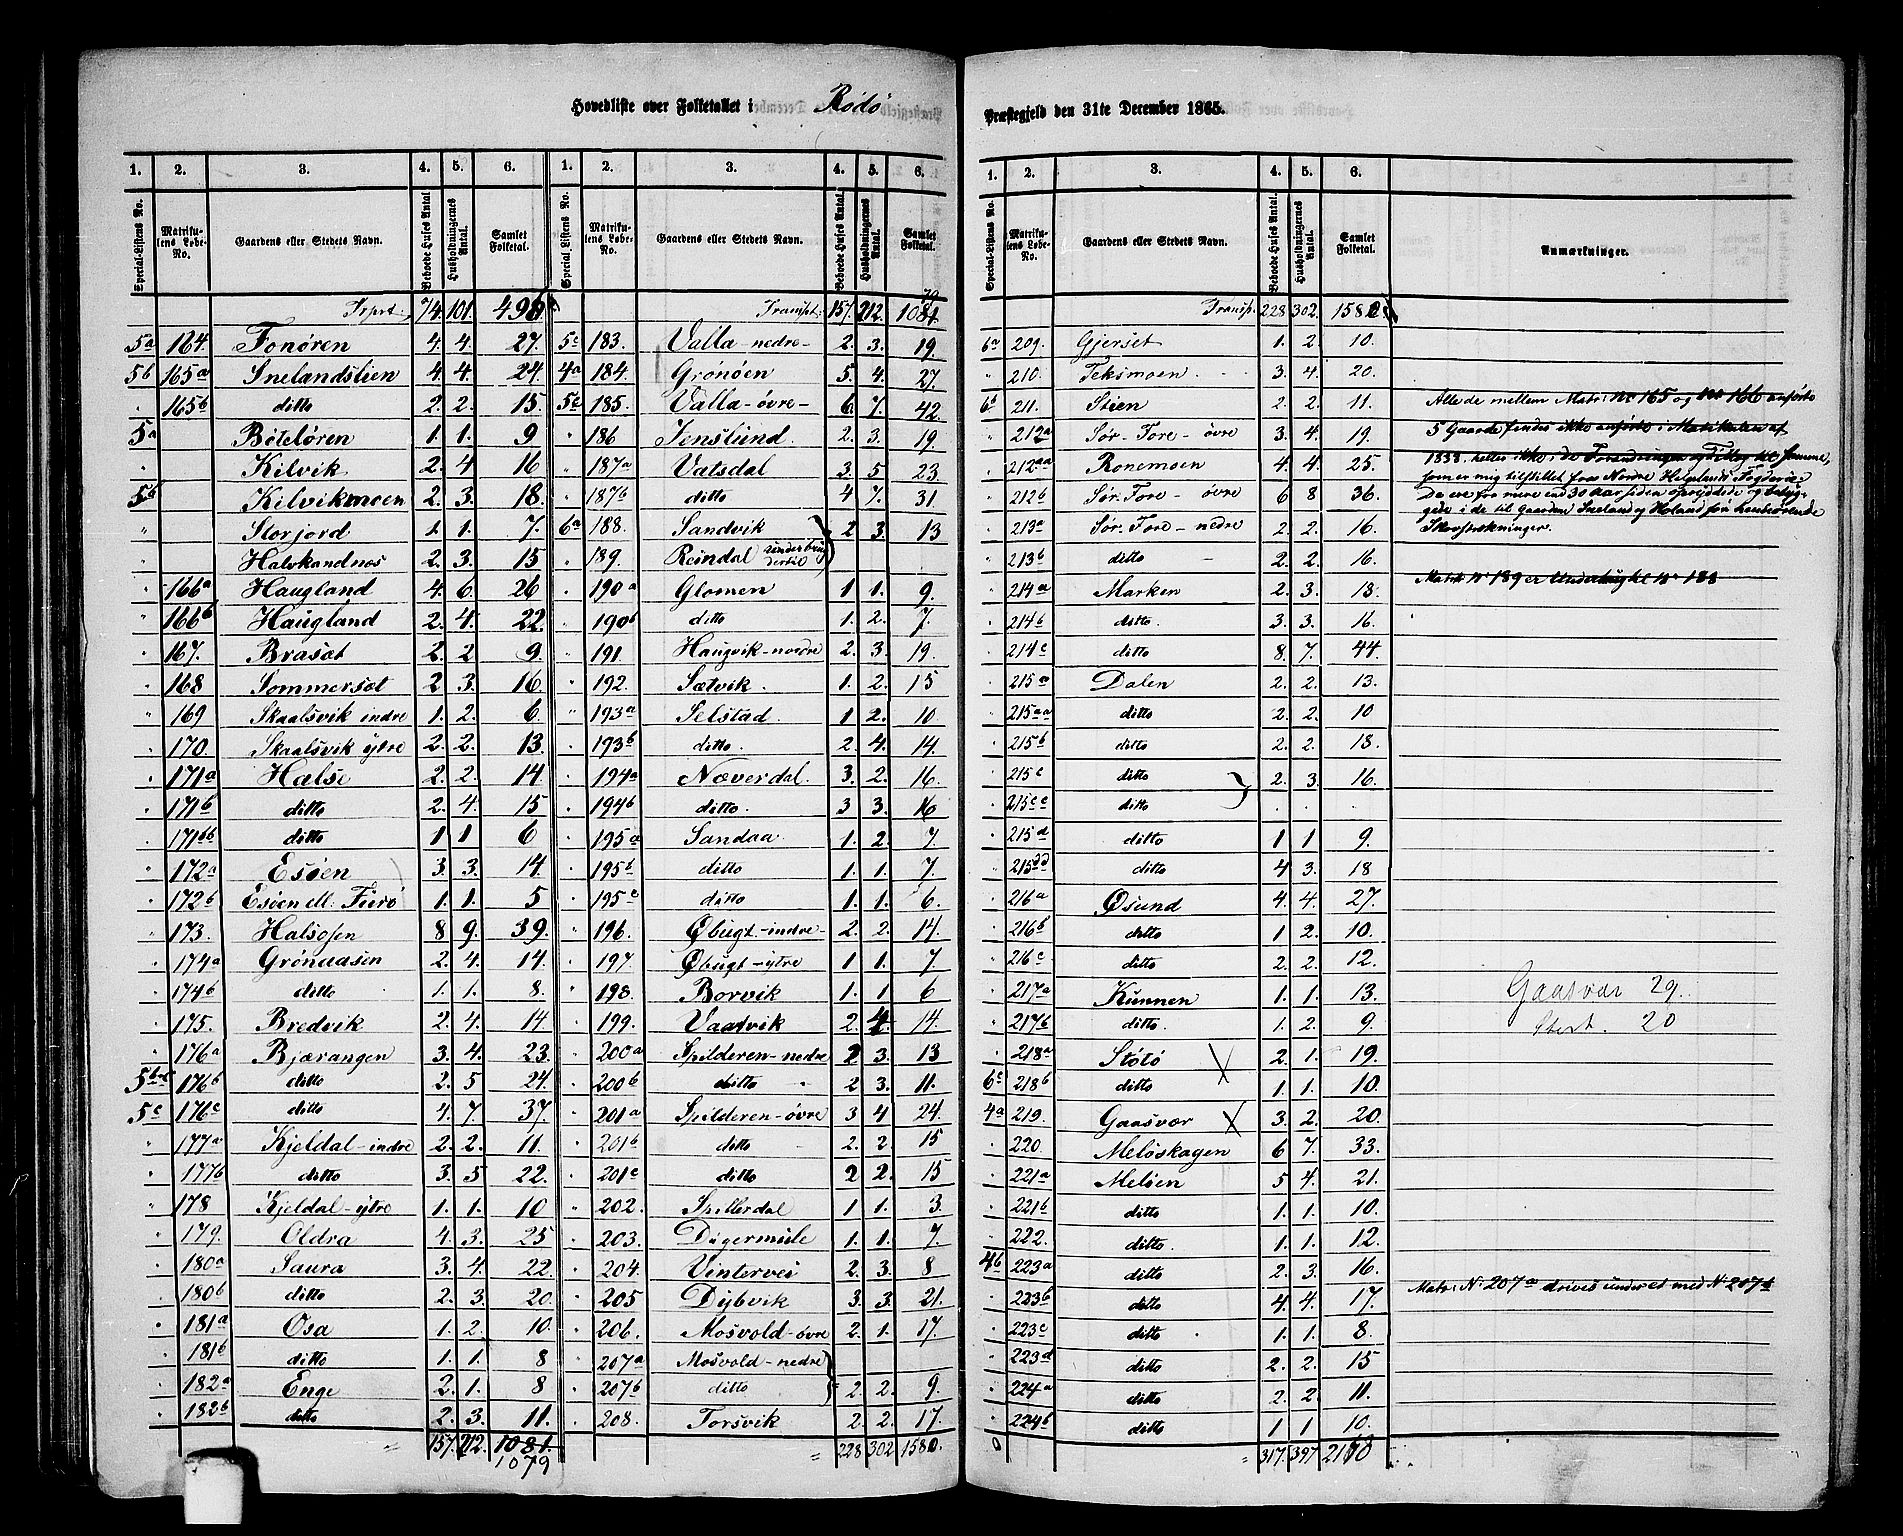 Hovedliste over Folketallet i Rödö
Præstegjeld den 31te December 1865.
1. 2. 3. 4. 5. 6. 1. 2. 3. 4. 5. 6.
Special-Listens No. Matrikulens Løbe-No. Gaardens eller Stedets Navn. Beboede Huses Antal Husholdningernes Antal. Samlet Folketal. Special Listens No. Matrikulens Løbe-No. Gaardens eller Stedets Navn. Beboede Huses Antal Husholdningernes Antal. Samlet Folketal.
Trprt. 74. 101. 498 Transpt. 157. 212. 1081 79
5a 164. Fonøren 4. 4. 27. 5c 183. Valla nedre 2. 3. 19.
5b 165a Snelandslien 4. 4. 24. 4a 184. Grønøen 5. 4. 27.
" 165b ditto 2. 2. 15. 5c 185. Valla-øvre 6. 7. 42.
5a Bötelören 1. 1. 9 " 186 Jenslund. 2. 3. 19.
" Kilvik 2. 4 16 " 187a Vatsdal 3. 5 23.
5b Kilvikmoen 2. 3. 18. " 187b ditto 4 7. 31.
" Storjord 1. 1. 7. 6a 188. Sandvik 2 3. 13
Halskandnes 2. 3. 15 " 189. Reindal
" 166a Haugland 4. 6. 26 " 190a Glomen 1 1. 9.
" 166b Haugland 2. 4. 22. " 190b ditto 1. 2. 7.
" 167. Brasöt 2. 2 9. " 191. Haugvik-nordre 2. 3. 19.
" 168 Sommersöt 2 3. 16. " 192. Sætvik. 1. 2. 15
" 169 Skaalsvik indre 1. 2. 6. " 193a Selstad. 1 2. 10
" 170. Skaalsvik ytre 2. 2. 13. " 193b ditto. 2. 4. 14.
" 171a Halse 2. 2. 14 " 194a Næverdal. 3. 2. 16.
" 171b ditto 2. 4. 15. " 194b ditto. 3 3. 16
" 171bb ditto 1 1 6 " 195a Sandaa. 1. 2. 7.
" 172a Esöen 3. 3. 14. " 195b ditto 1. 1. 7.
" 172b Esöen M. Fierö 1. 1. 5 " 195c ditto 1. 1. 6.
" 173. Halsosen 8 9. 39. " 196. Øbugt-indre 2. 2. 14.
" 174a Grönaasen 2. 4. 14. " 197. Øbugt-ytre 1 1. 7.
" 174b ditto 1. 1. 8. " 198. Borvik 1. 1 6
" 175. Bredvik 2. 4. 14. " 199. Vaatvik 2. 4. 14.
" 176a Bjærangen 3. 4. 23. " 200a Spilderen-nedre 2 3. 13
176b ditto 2. 5 24. " 200b ditto 2 3. 11.
5c 176c ditto 4. 7. 37. " 201a Spilderen-øvre 3 4 24.
" 177a Kjeldal-indre 2. 2. 11. " 201b ditto 2. 2. 15
" 177b ditto 3. 5 22. " 201c ditto 2 2. 15
" 178 Kjeldal-ytre 1. 1. 10 " 202. Spillerdal 1 1. 3.
" 179. Oldra 4. 3. 25 " 203. Digermule 1. 1. 7.
" 180a Saura 3. 4. 22. " 204. Vintervei 2. 3. 8
" 180b ditto 2. 3. 20. " 205 Dybvik 3. 3. 21.
" 181a Osa 1. 2. 10. " 206. Mosvold-øvre 2. 1. 17.
" 181b ditto 1. 1. 8 " 207a Mosvold-nedre
" 182a Enge 2. 1. 8 " 207b ditto 2. 2. 9.
" 182b ditto 2. 3. 11. " 208. Torsvik 2. 2. 17.
157. 212. 1081. 228 302 1580.
1079
1. 2. 3. 4. 5. 6.
Special-Listens No. Matrikulens Løbe-No. Gaardens eller Stedets Navn. Beboede Huses Antal. Husholdningernes Antal. Samlet Folketal. Anmærkninger.
Transp. 228 302. 1582
6a 209. Gjerset 1. 2. 10.
" 210. Teksmoen 3. 4. 20.
211. Stien 2. 2. 11. Alle de mellem Matr: No 165 og No 166 anførte
" 212a Sör-Fore-øvre 3. 4. 19. 5 Gaarde findes ikke anførte i Matrikulen af
" 212aa Ronemoen 4. 4. 25. 1838, heller ikke i de Forandringer og Tillæg til samme,
" 212b Sör-Fore-øvre 6 8 36. som er mig tilstillet fra Nordre Helgelands Fogderie:
De ere for mere end 30 Aar siden oprydded og bebyg-
" 213a Sör-Fore-nedre 2. 2. 16. gede i de til Gaarden Sneland og Holand henhørende
Skovstrækninger.
" 213b ditto 2. 2. 16.
" 214a Marken 2. 3. 13. Matr. No 189 er Underbrug til No 188
" 214b ditto. 3. 3. 16.
" 214c ditto 8. 7. 44.
" 215a Dalen 2. 2. 13.
" 215aa ditto 2. 2. 10
" 215b ditto 2. 2. 18.
" 215c ditto 2. 3. 16.
" 215cc ditto
" 215d ditto 1 1 9.
" 215dd ditto 4 3. 18
" 216a Øsund 4. 4. 27.
" 216b ditto 1 2. 10.
" 216c ditto 2. 2. 12.
" 217a Kunnen 1. 1. 13. Gaasvær 29.
" 217b ditto. 1. 2. 9. Støtt. 20
" 218a Stötö X 2. 1. 19.
6c 218b ditto 1. 1. 10.
4a 219. Gaasvær X 3. 2. 20.
" 220. Melöskagen 6 7. 33.
" 221a Melöen 5 4. 21.
" 221b ditto 1. 1. 10.
" 222. ditto. 1. 1. 12.
4b 223a ditto 2. 3. 16.
" 223b ditto 4. 4. 17. Matr: No. 207a drives under et med No. 207b
" 223c ditto 1. 1. 8.
" 223d ditto 2. 2. 15
" 224a ditto 2. 2. 11.
" 224b ditto 1 1 10.
317. 397